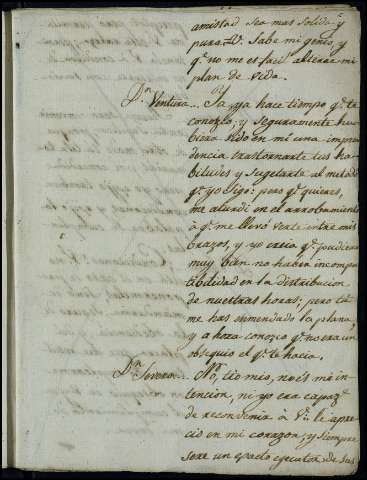 amistad sea mas solida, y
pura. V. Sabe mi genio, y
q.e no me es facil alterar mi
plan de vida.
D.n Ventura... Ya, ya hace tiempo q.e te
conozco, y seguramente hu
biera sido en mi una impru
dencia trastornarte tus ha
bitudes y sugetarte al metodo
q.e yo sigo: pero q.e quieres,
me aturdi en el arrobamiento
à q.e me llevó verte entre mis
brazos, y yo creia q.e pudiera
muy bien no haber incompa
tibilidad en la distribucion
de nuestras horas; pero tu
me has enmendado la plana,
y ahora conozco q.e no era un
obsequio el q.e te hacia.
D.n Severo... No, tio mio, no es mi in
tencion, ni yo era capaz
de reconvenir à V. le apre
cio en mi corazon, y siempre
sere un exacto egecutor de sus